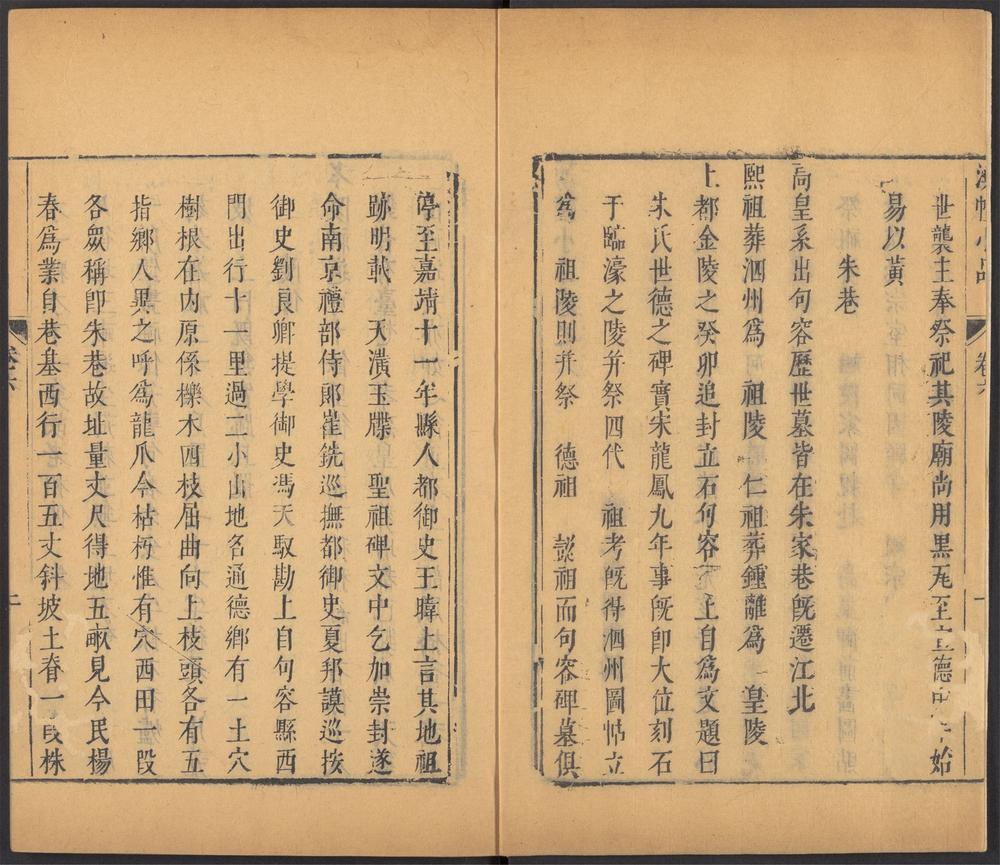 湧幢小品
卷六
一
世襲主奉祭祀其陵廟尚用黑瓦至宣德中始
易以黃
朱巷
高皇系出句容歷世墓皆在朱家巷旣遷江北
熙祖葬泗州爲 祖陵 仁祖葬鍾離爲 皇陵
上都金陵之癸卯追封立石句容 上自爲文題曰
朱氏世德之碑實宋龍鳳九年事旣卽大位刻石
于臨濠之陵并祭四代 祖考旣得泗州圖帖立
爲 祖陵則并祭 德祖 懿祖而句容碑墓俱
停至嘉靖十一年縣人都御史王暐上言其地祖
跡明載 天潢玉牒 聖祖碑文中乞加崇封遂
命南京禮部侍郞崔銑巡撫都御史夏邦謨巡按
御史劉良卿提學御史馮天馭勘上自句容縣西
門出行十一里過二小山地名通德鄉有一土穴
樹根在內原係櫟木四枝屈曲向上枝頭各有五
指鄉人異之呼爲龍爪今枯朽惟有穴西田一段
各衆稱卽朱巷故址量丈尺得地五畝見今民楊
春爲業自巷基西行一百五丈斜坡土脊一段株
卷六